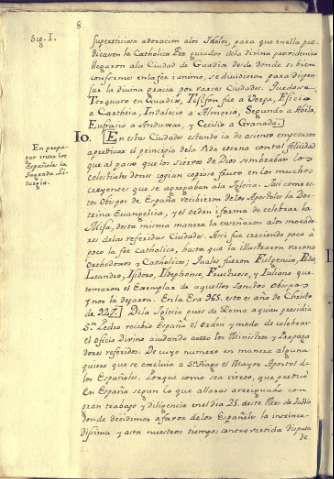 8
Sig. I.
supersticiosa adoracion alos Ydolos, para que en ella pre-
dicaran la Catholica Fee guiados dela divina providencia
llegaron ala Ciudad de Guadix desde donde si bien
conformes en la fee y animo, se dividieron para dispen-
sar la divina gracia por varias Ciudades. Quedose
Torquato en Guadix, Tesifon fue a Verga, Esicio
a Carthesa, Indalecio a Almeria, Segundo a Abila,
Eufrasio a Anduxar, y Cecilio a Granada.]
10. [En estas Ciudades estando ia de asiento empezaron
a predicar el principio dela vida eterna con tal felicidad
que al paso que los siervos de Dios sembraban los
celestiales dones cogian copioso fruto en los muchos
creyentes que se agregaban ala Iglesia. Asi como es-
tos Obispos de España recibieron delos Apostoles la Doc-
trina Evangelica, y el orden i forma de celebrar la
Misa, desta misma manera la enseñaron alos morado-
res delas referidas Ciudades. Asi fue creciendo poco a
poco la fee Catholica, hasta que la illustraron varones
Orthodoxos y Catholicos; Quales fueron Fulgencio,
Leandro, Isidoro, Ildephonso, Fructuoso, y Juliano que
tomaron el Exemplar de aquellos Santos Obispos
y nos la dexaron. En la Era 965. esto es año de Christo
de 927.] Dela Iglesia pues de Roma aquien presidia
Sn. Pedro recibio España el orden y modo de celebrar
el oficio divino
dores referidos. De cuyo numero en manera alguna
quiero que se excluia a Sn. Tiago el Mayor Apostol de
los Españoles. Porque como sea cierto, que predicó
en España segun lo que alli ... con
gran trabajo y diligencia en el dia 25. deste Mes de Julio
donde decidimos a favor delos Españoles la
dissima y asta nuestros tiempos controvertida disputa
de
En prepa-
Españoles la
Sagrada Li-
turgia.